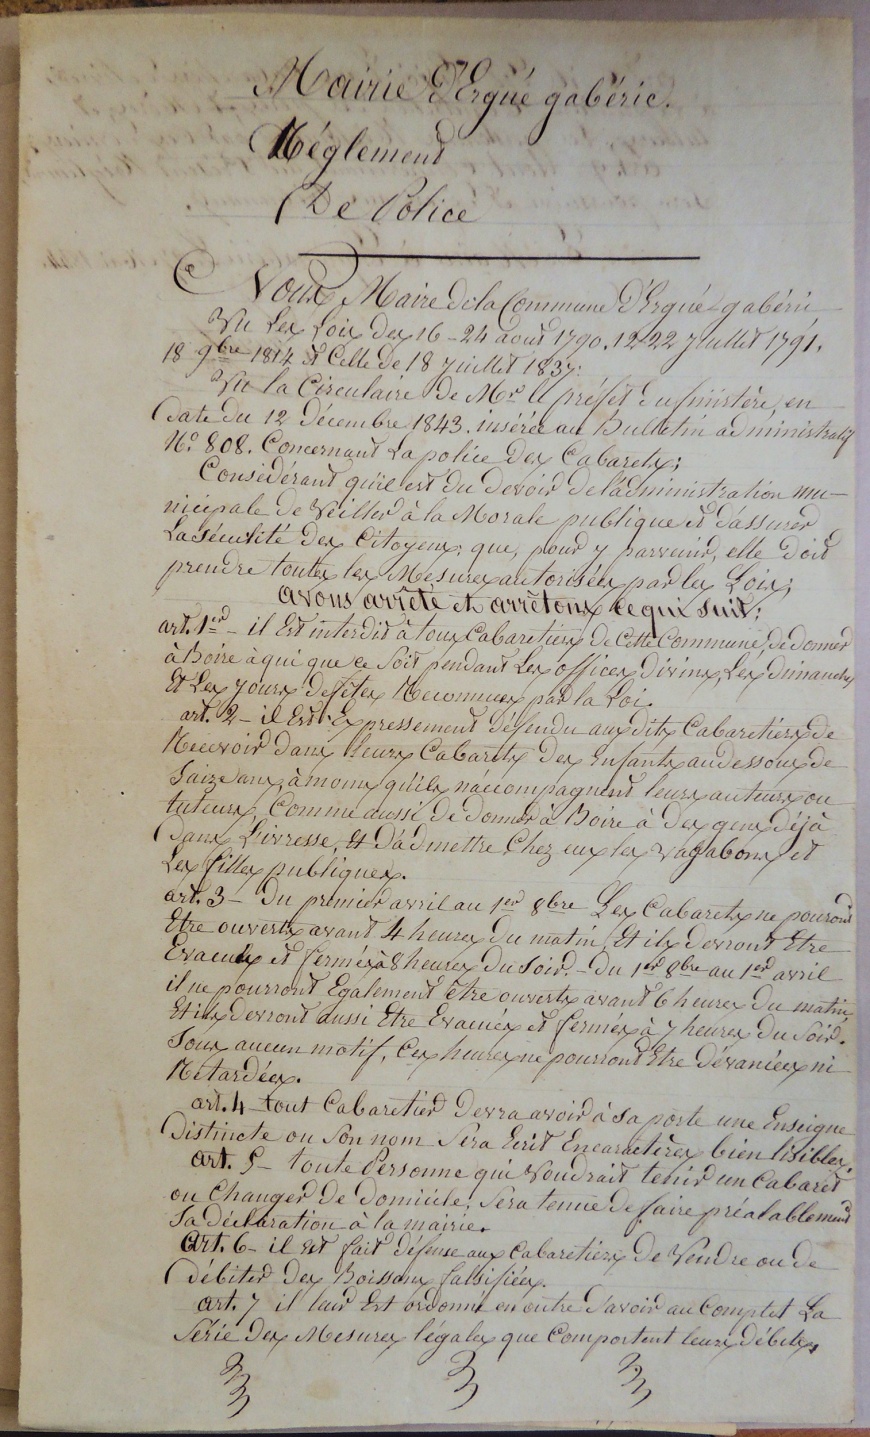 Mairie d'Ergué gabéric.
Réglement
De Police
Nous, Maire de la Commune d'Ergué-gabéric
Vu Les Loix des 16-24 aout 1790. 12 22 Juillet 1791.
18 9bre 1814 et Celle de 18 Juillet 1837:
Vu la Circulaire de Mr le préfet du finistère, en
Date du 12 décembre 1843. insérée au Bulletin administratif
No 808. Concernant La police Des Cabarets;
Considérant qu'il est du devoir de l'administration mu-
nicipale de Veiller à la Morale publique et d'assurer
La sécurité Des Citoyens; que, pour y parvenir, elle doit
prendre toutes les Mesures autorisées par les Loix;
avons arrêté et arrêtons ce qui suit:
art. 1er - il Est interdit à tous Cabaretiers de Cette Commune, de donner
à Boire à qui que ce soit pendant Les offices Divins, Les dimanches
Et Les jours de fêtes Reconnues par la Loi.
art. 2 - il Est Expressement défendu aux dits Cabaretiers de
Recevoir dans leurs Cabarets Des Enfants au dessous de
Saize ans, à moins qu'ils n'accompagnent leurs auteurs ou
tuteurs, Comme aussi de donner à Boire à Des gens déjà
Dans L'ivresse, Et d'admettre Chez eux les vagabons et
Les filles publiques.
art. 3 - Du premier avril au 1er 8bre Les Cabarets ne pouront
Etre ouverts avant 4 heures du matin, Et ils devront Etre
Evacués et fermés à 8 heures du soir. - Du 1er 8bre au 1er avril
il ne pourront Egalement être ouverts avant 6 heures du matin,
Et ils devront aussi Etre Evacués et fermés à 7 heures du Soir.
Sous aucun motif, Ces heures ne pourront Etre dévancées ni
Retardées.
art. 4 - tout Cabaretier Devra avoir à sa porte une Enseigne
Distincte ou Son nom Sera Ecrit En caractères bien lisibles.
art. 5 - toute Personne qui Voudrait tenir un Cabaret
ou Changer de domicile, Sera tenue de faire préalablement
Sa déclaration à la mairie.
art. 6 - il est fait défense aux Cabaretiers de Vendre ou de
débiter Des Boissons falsifiées.
art. 7 il leur Est ordonné en outre d'avoir au Complet La
Série Des Mesures légales que Comportent leurs débits,